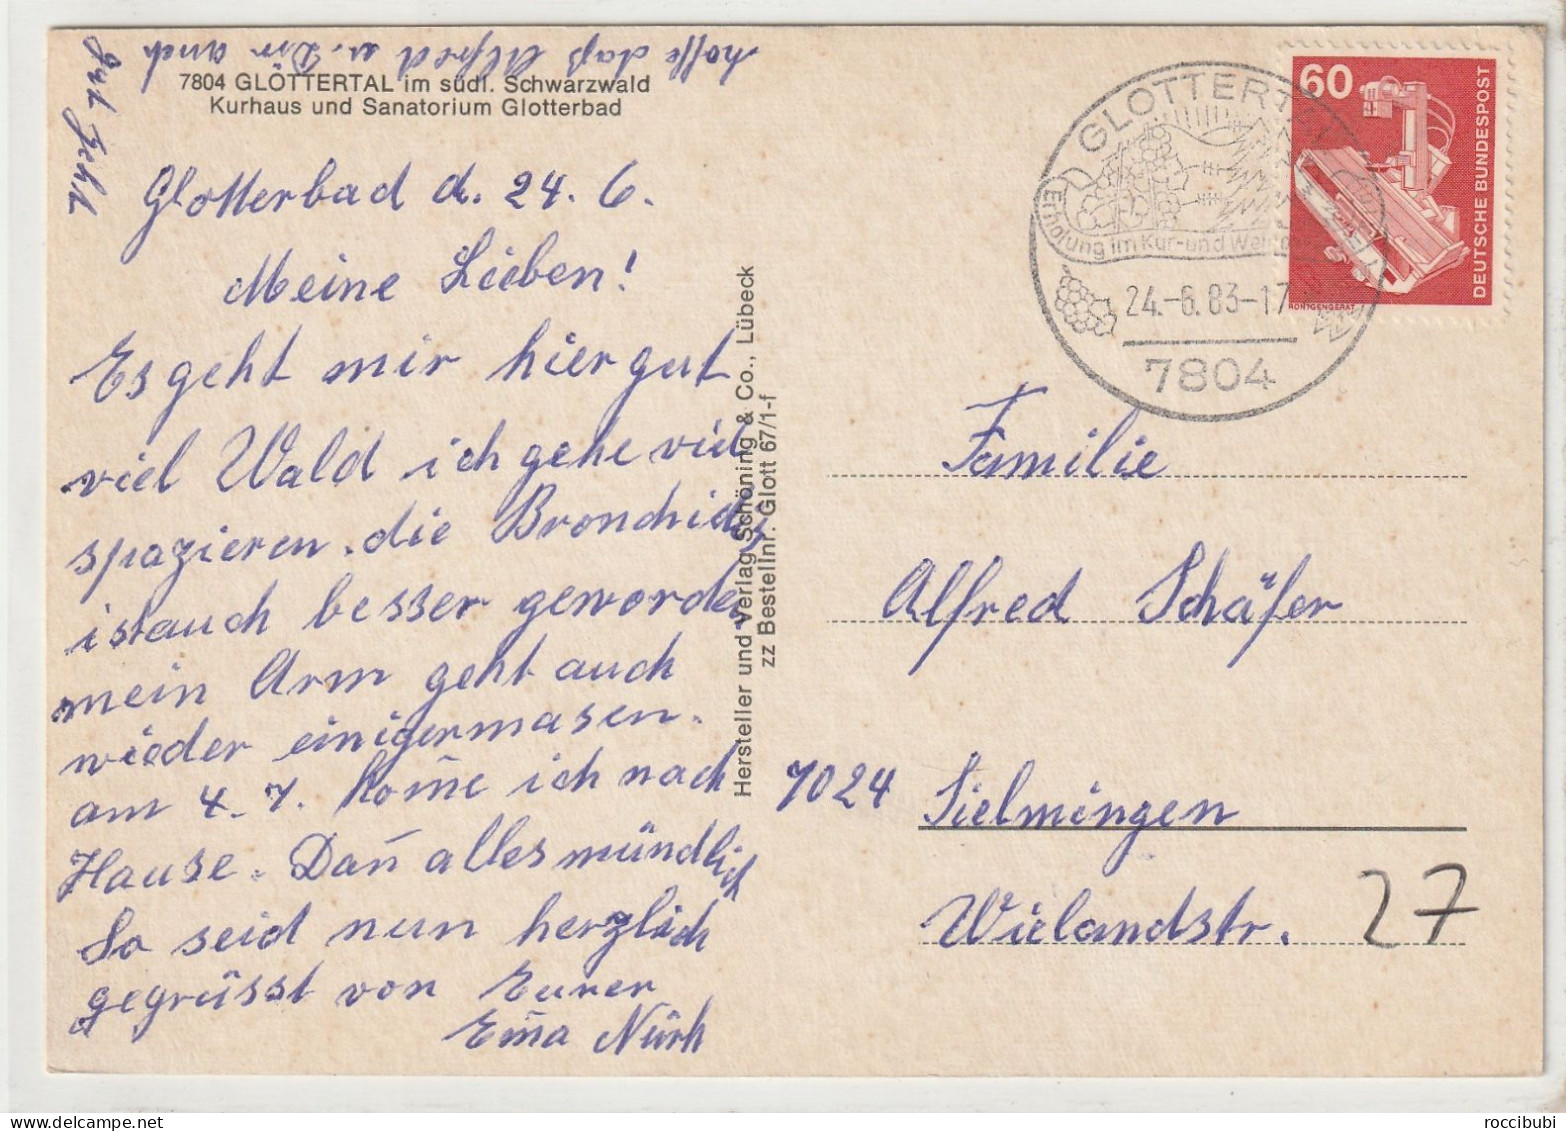 7804 GLOTTERTAL im südl. Schwarzwald
Kurhaus und Sanatorium Glotterbad
Glotterbad d. 24. 6.
Meine Lieben!
Es geht mir hier gut
viel Wald ich gehe viel
spazieren. die Bronchids
ist auch besser geworden
mein Arm geht auch
wieder einigermasen.
am 4. 7. kom̄e ich nach
Hause. Dan̄ alles mündlich
So seid nun herzlich
gegrüsst von Eurer
Em̄a Nürk
hoffe daß Alfred u. Dir auch
gut geht
Hersteller und Verlag Schöning & Co., Lübeck
zz Bestellnr. Glott 67/1-f
GLOTTERTAL
Erholung im Kur- und Wein
24.-6.83-17
7804
60
DEUTSCHE BUNDESPOST
RÖNTGENGERÄT
Familie
Alfred Schäfer
7024 Sielmingen
Wielandstr. 27
roccibubi